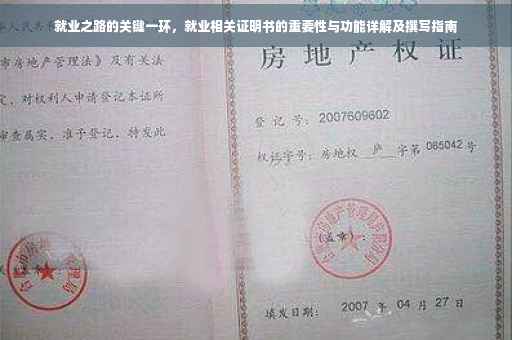 就业之路的关键一环，就业相关证明书的重要性与功能详解及撰写指南
华人民共
市房地产管理法》及有关法
定，对权利人申请登记本证所
审查属实，准予登记，特发此
房地产权
登记号：2007609602
权证字号：房地权 庐 字第 085042 号
(盖章)：
填发日期： 2007 年 04 月 27 日